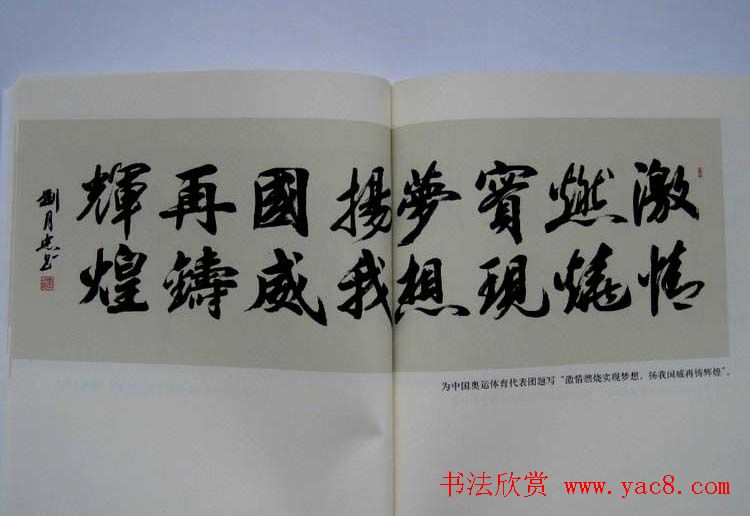 激情
燃燒
實現
夢想
揚我
國威
再鑄
輝煌
劉月
为中国奥运体育代表团题写“激情燃烧实现梦想，扬我国威再铸辉煌”。
书法欣赏 www.yac8.com